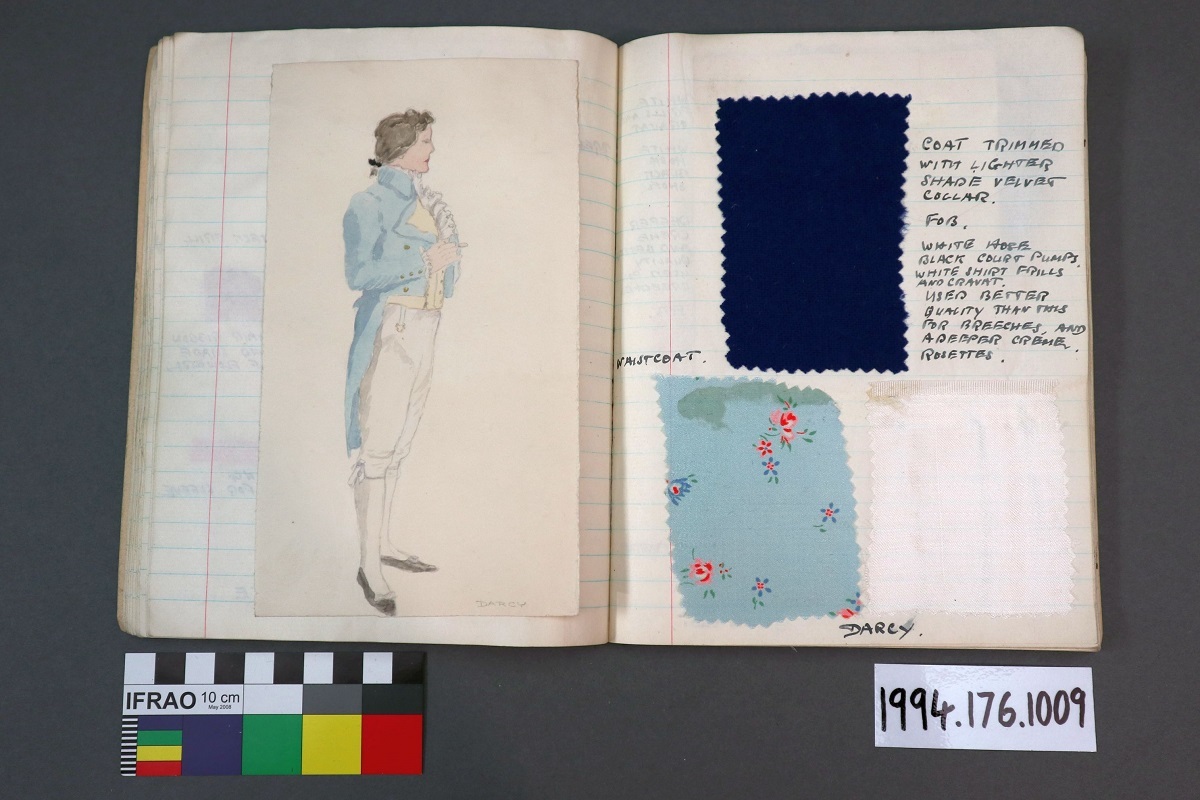 DARCY
COAT TRIMMED
WITH LIGHTER
SHADE VELVET
COLLAR.
FOB.
WHITE HOSE
BLACK COURT PUMPS.
WHITE SHIRT FRILLS
AND CRAVAT.
USED BETTER
QUALITY THAN THIS
FOR BREECHES, AND
A DEEPER CREME.
ROSETTES.
WAISTCOAT.
DARCY.
IFRAO 10 cm
May 2008
1994.176.1009